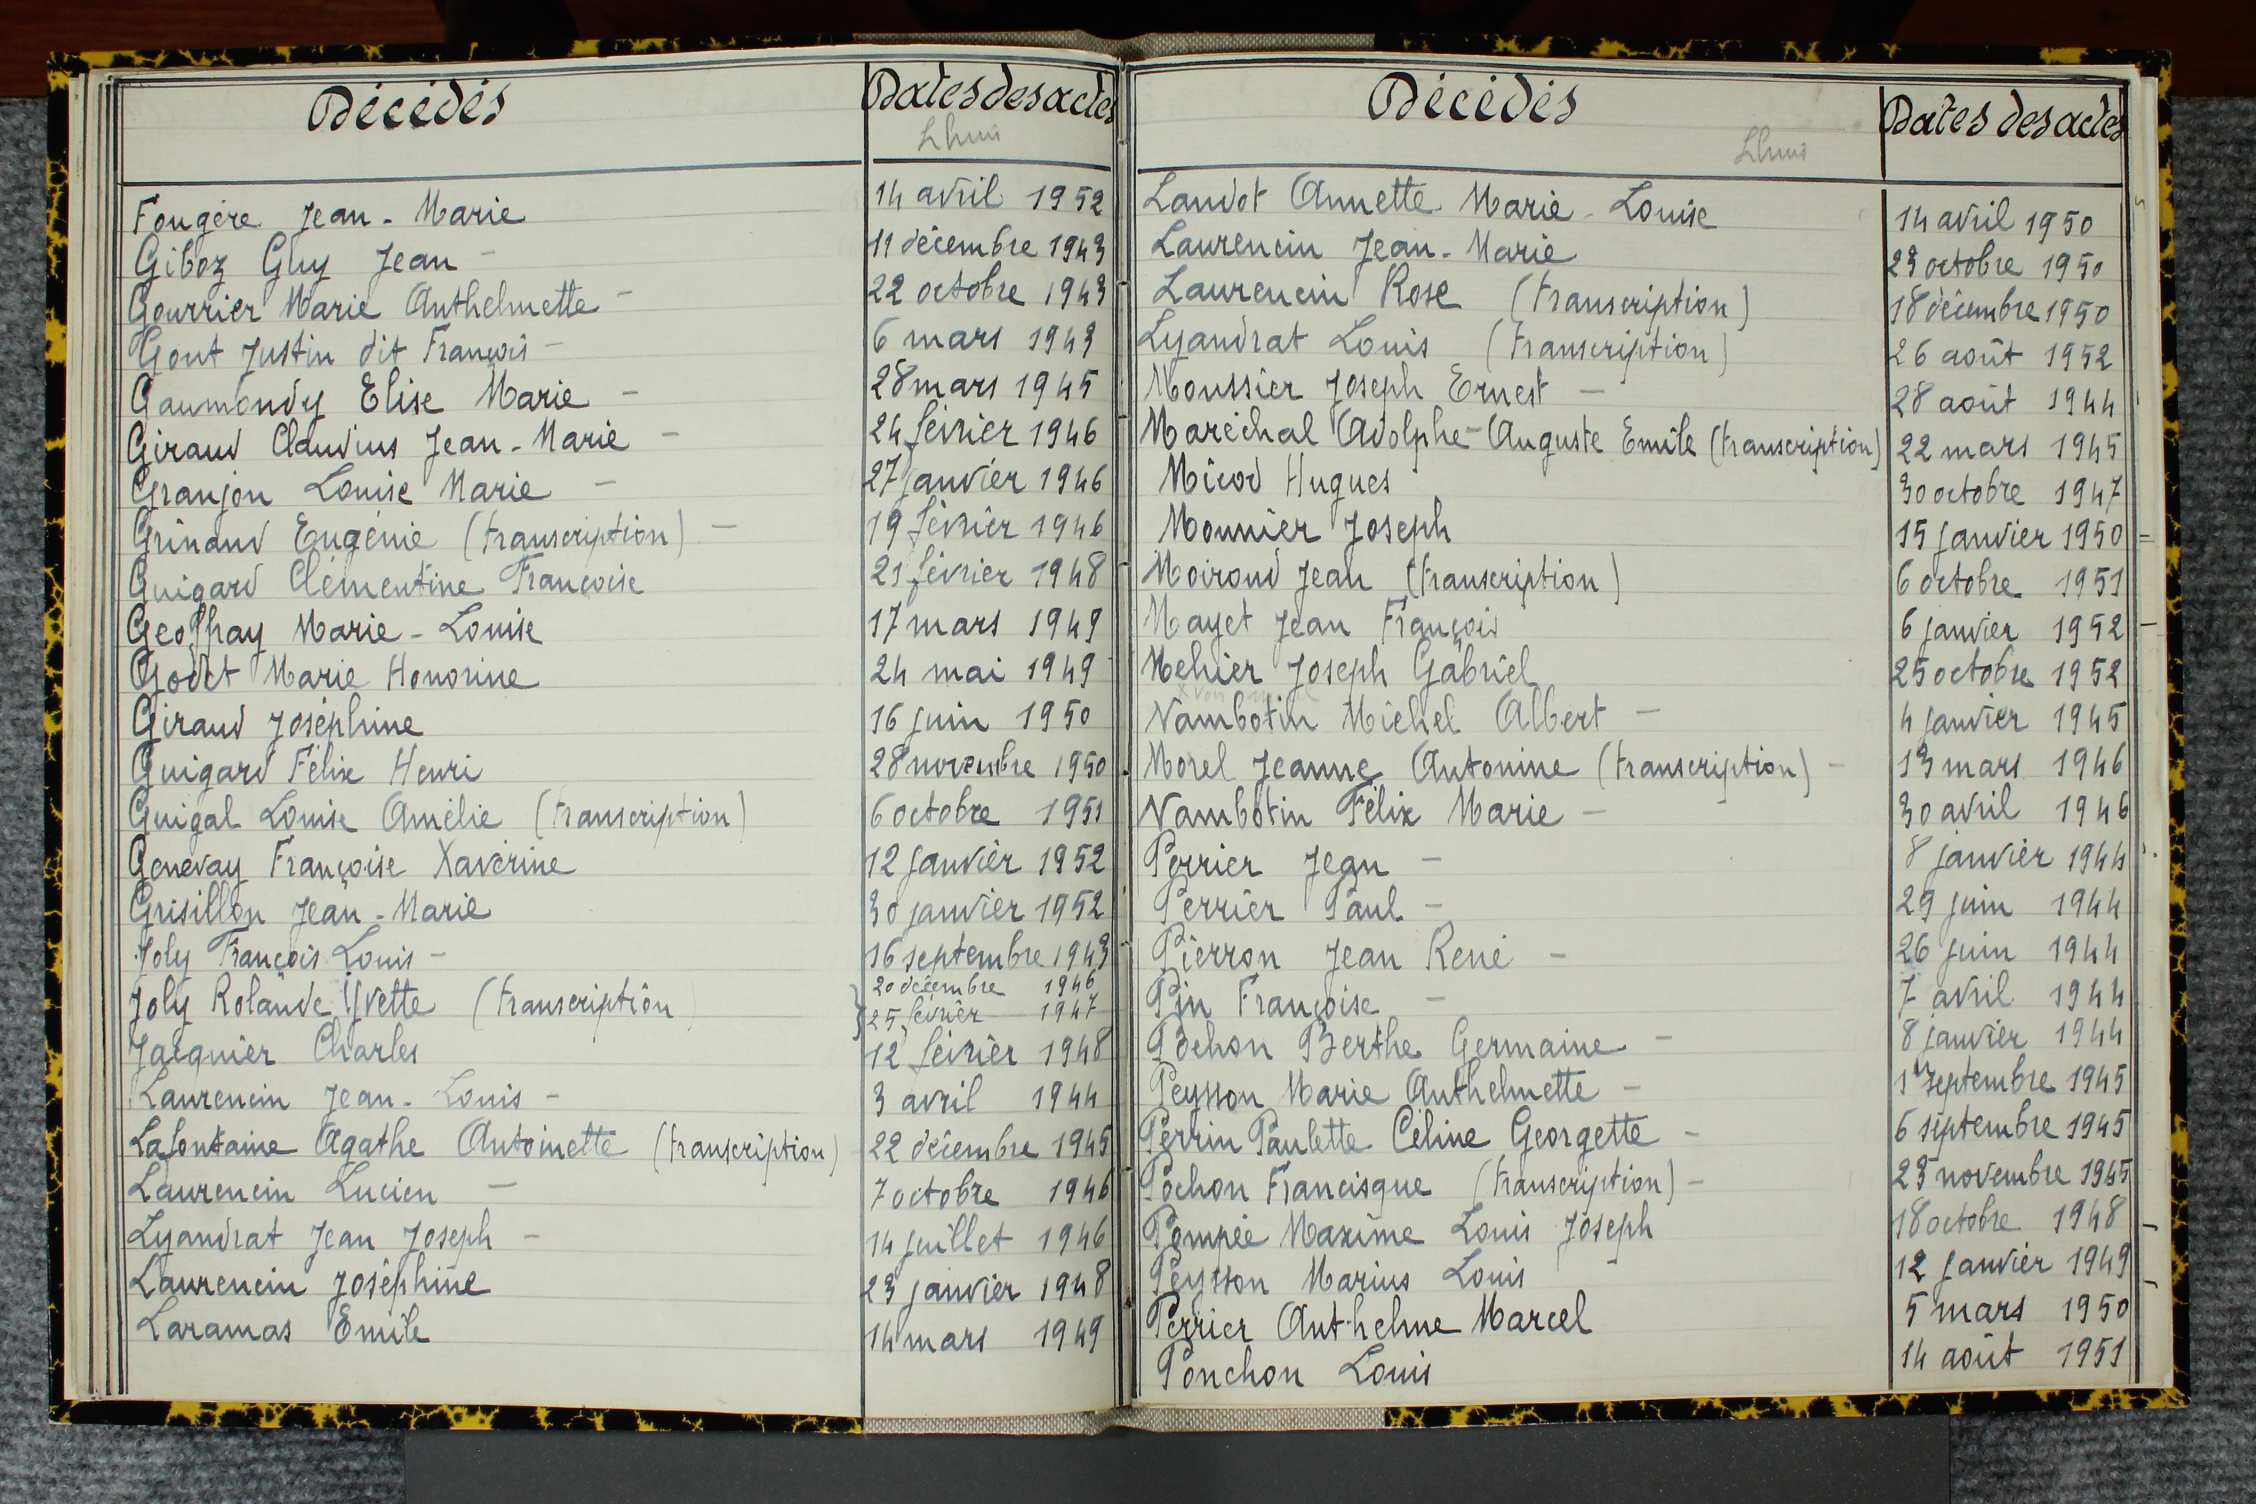 Décédés Dates des actes
Lhuis
Fougère Jean-Marie 14 avril 1952
Giboz Guy Jean - 11 décembre 1943
Gourrier Marie Anthelmette - 22 octobre 1943
Gout Justin dit François - 6 mars 1943
Gaumondy Elise Marie - 28 mars 1945
Giraud Claudius Jean-Marie - 24 février 1946
Granjon Louise Marie - 27 janvier 1946
Grinand Eugénie (transcription) - 19 février 1946
Guigard Clémentine Françoise 21 février 1948
Geoffray Marie-Louise 17 mars 1949
Godet Marie Honorine 24 mai 1949
Giraud Joséphine 16 juin 1950
Guigard Félix Henri 28 novembre 1950
Guigal Louise Amélie (transcription) 6 octobre 1951
Genevay Françoise Xavérine 12 janvier 1952
Grisillon Jean-Marie 30 janvier 1952
Joly François Louis - 16 septembre 1943
Joly Rolande Yvette (transcription) 20 décembre 1946
25 février 1947
Jacquier Charles 12 février 1948
Laurencin Jean-Louis - 3 avril 1944
Lafontaine Agathe Antoinette (transcription) 22 décembre 1945
Laurencin Lucien - 7 octobre 1946
Lyandrat Jean Joseph - 14 juillet 1946
Laurencin Joséphine 23 janvier 1948
Laramas Emile 14 mars 1949
Décédés Dates des actes
Lhuis
Landot Annette Marie-Louise 14 avril 1950
Laurencin Jean-Marie 23 octobre 1950
Laurencin Rose (transcription) 18 décembre 1950
Lyandrat Louis (transcription) 26 août 1952
Moussier Joseph Ernest - 28 août 1944
Maréchal Adolphe-Auguste Emile (transcription) 22 mars 1945
Micod Hugues 30 octobre 1947
Monnier Joseph 15 janvier 1950
Moiroud Jean (transcription) 6 octobre 1951
Mayet Jean François 6 janvier 1952
Mehier Joseph Gabriel 25 octobre 1952
Nambotin Michel Albert - 4 janvier 1945
Morel Jeanne Antonine (transcription) - 13 mars 1946
Nambotin Félix Marie - 30 avril 1946
Perrier Jean - 8 janvier 1944
Perrier Paul - 29 juin 1944
Pierron Jean René - 26 juin 1944
Pin Françoise - 7 avril 1944
Pochon Berthe Germaine - 8 janvier 1944
Peysson Marie Anthelmette - 1er septembre 1945
Perrin Paulette Céline Georgette - 6 septembre 1945
Pochon Francisque (transcription) - 23 novembre 1945
Pompée Maxime Louis Joseph 18 octobre 1948
Peysson Marius Louis - 12 janvier 1949
Perrier Anthelme Marcel 5 mars 1950
Ponchon Louis 14 août 1951